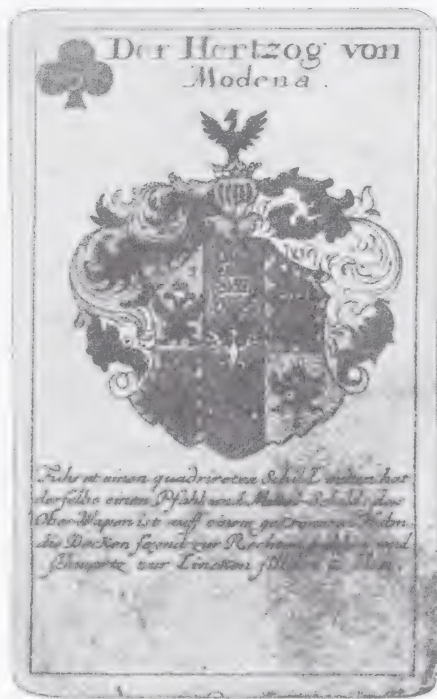 Der Hertzog von
Modena.
Führet einen quadrireten Schild mitten hat
derselbe einen Pfahl und Mittel-Schild, das
Ober-Wapen ist auff einem gekrönten Helm
die Decken seynd zur Rechten und
schwartz zur Lincken